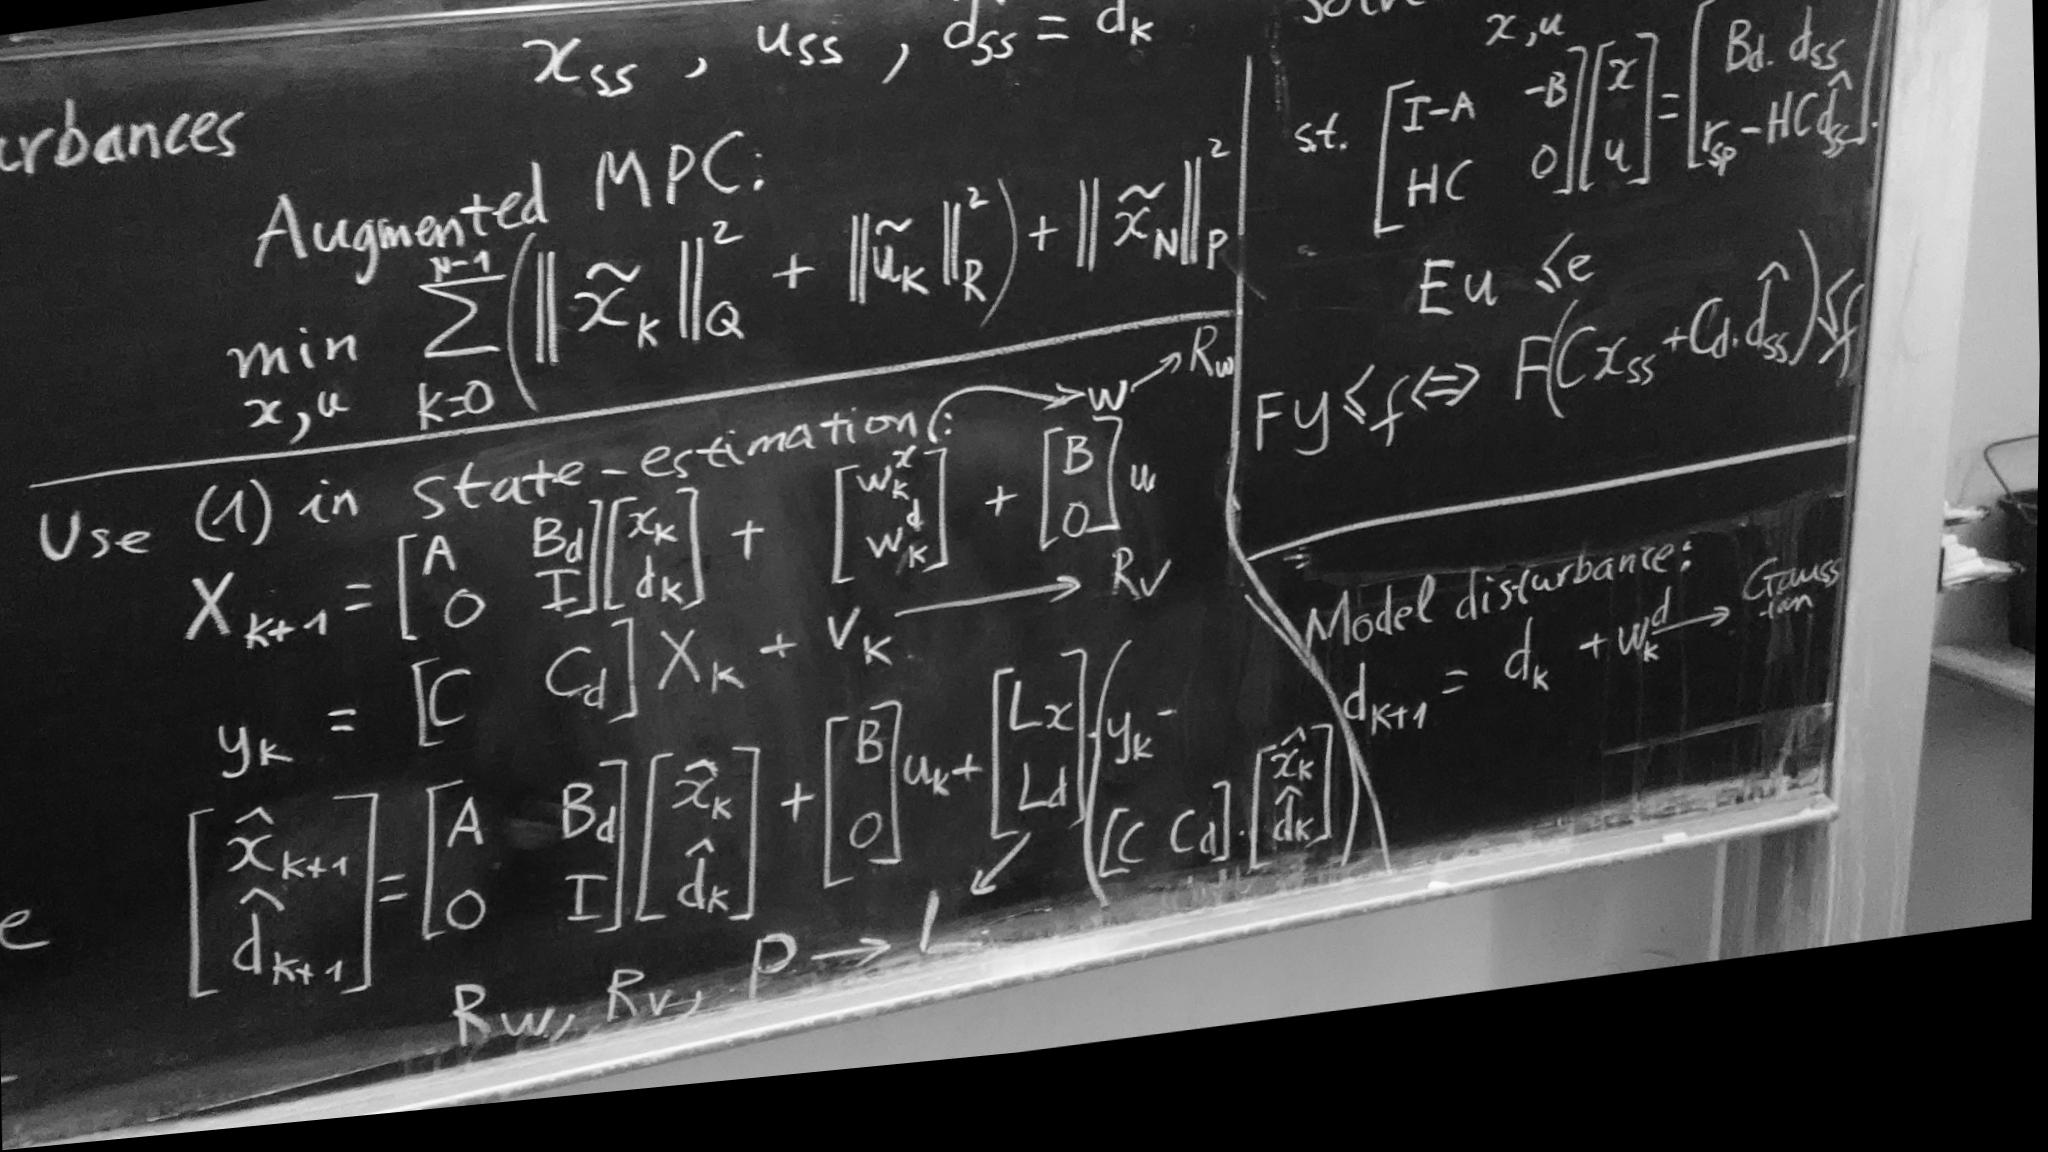 x_ss , u_ss , d_ss = d_k
urbances
Augmented MPC:
min_{x,u} Σ_{k=0}^{N-1} ( ‖x̃_k‖²_Q + ‖ũ_k‖²_R ) + ‖x̃_N‖²_P
Use (1) in state-estimation:
w → R_w
X_{k+1} = [A B_d; 0 I] [x_k; d_k] + [w_k^x; w_k^d] + [B; 0] u
y_k = [C C_d] X_k + v_k → R_v
[x̂_{k+1}; d̂_{k+1}] = [A B_d; 0 I] [x̂_k; d̂_k] + [B; 0] u_k + [L_x; L_d] · (y_k - [C C_d] · [x̂_k; d̂_k])
e
R_w, R_v, P → L
x,u
s.t. [I-A -B; HC 0] [x; u] = [B_d. d_ss; r_sp - HC d̂_ss].
Eu ≤ e
Fy ≤ f ⇔ F(Cx_ss + C_d. d̂_ss) ≤ f
Model disturbance:
d_{k+1} = d_k + w_k^d → Gauss
-ian